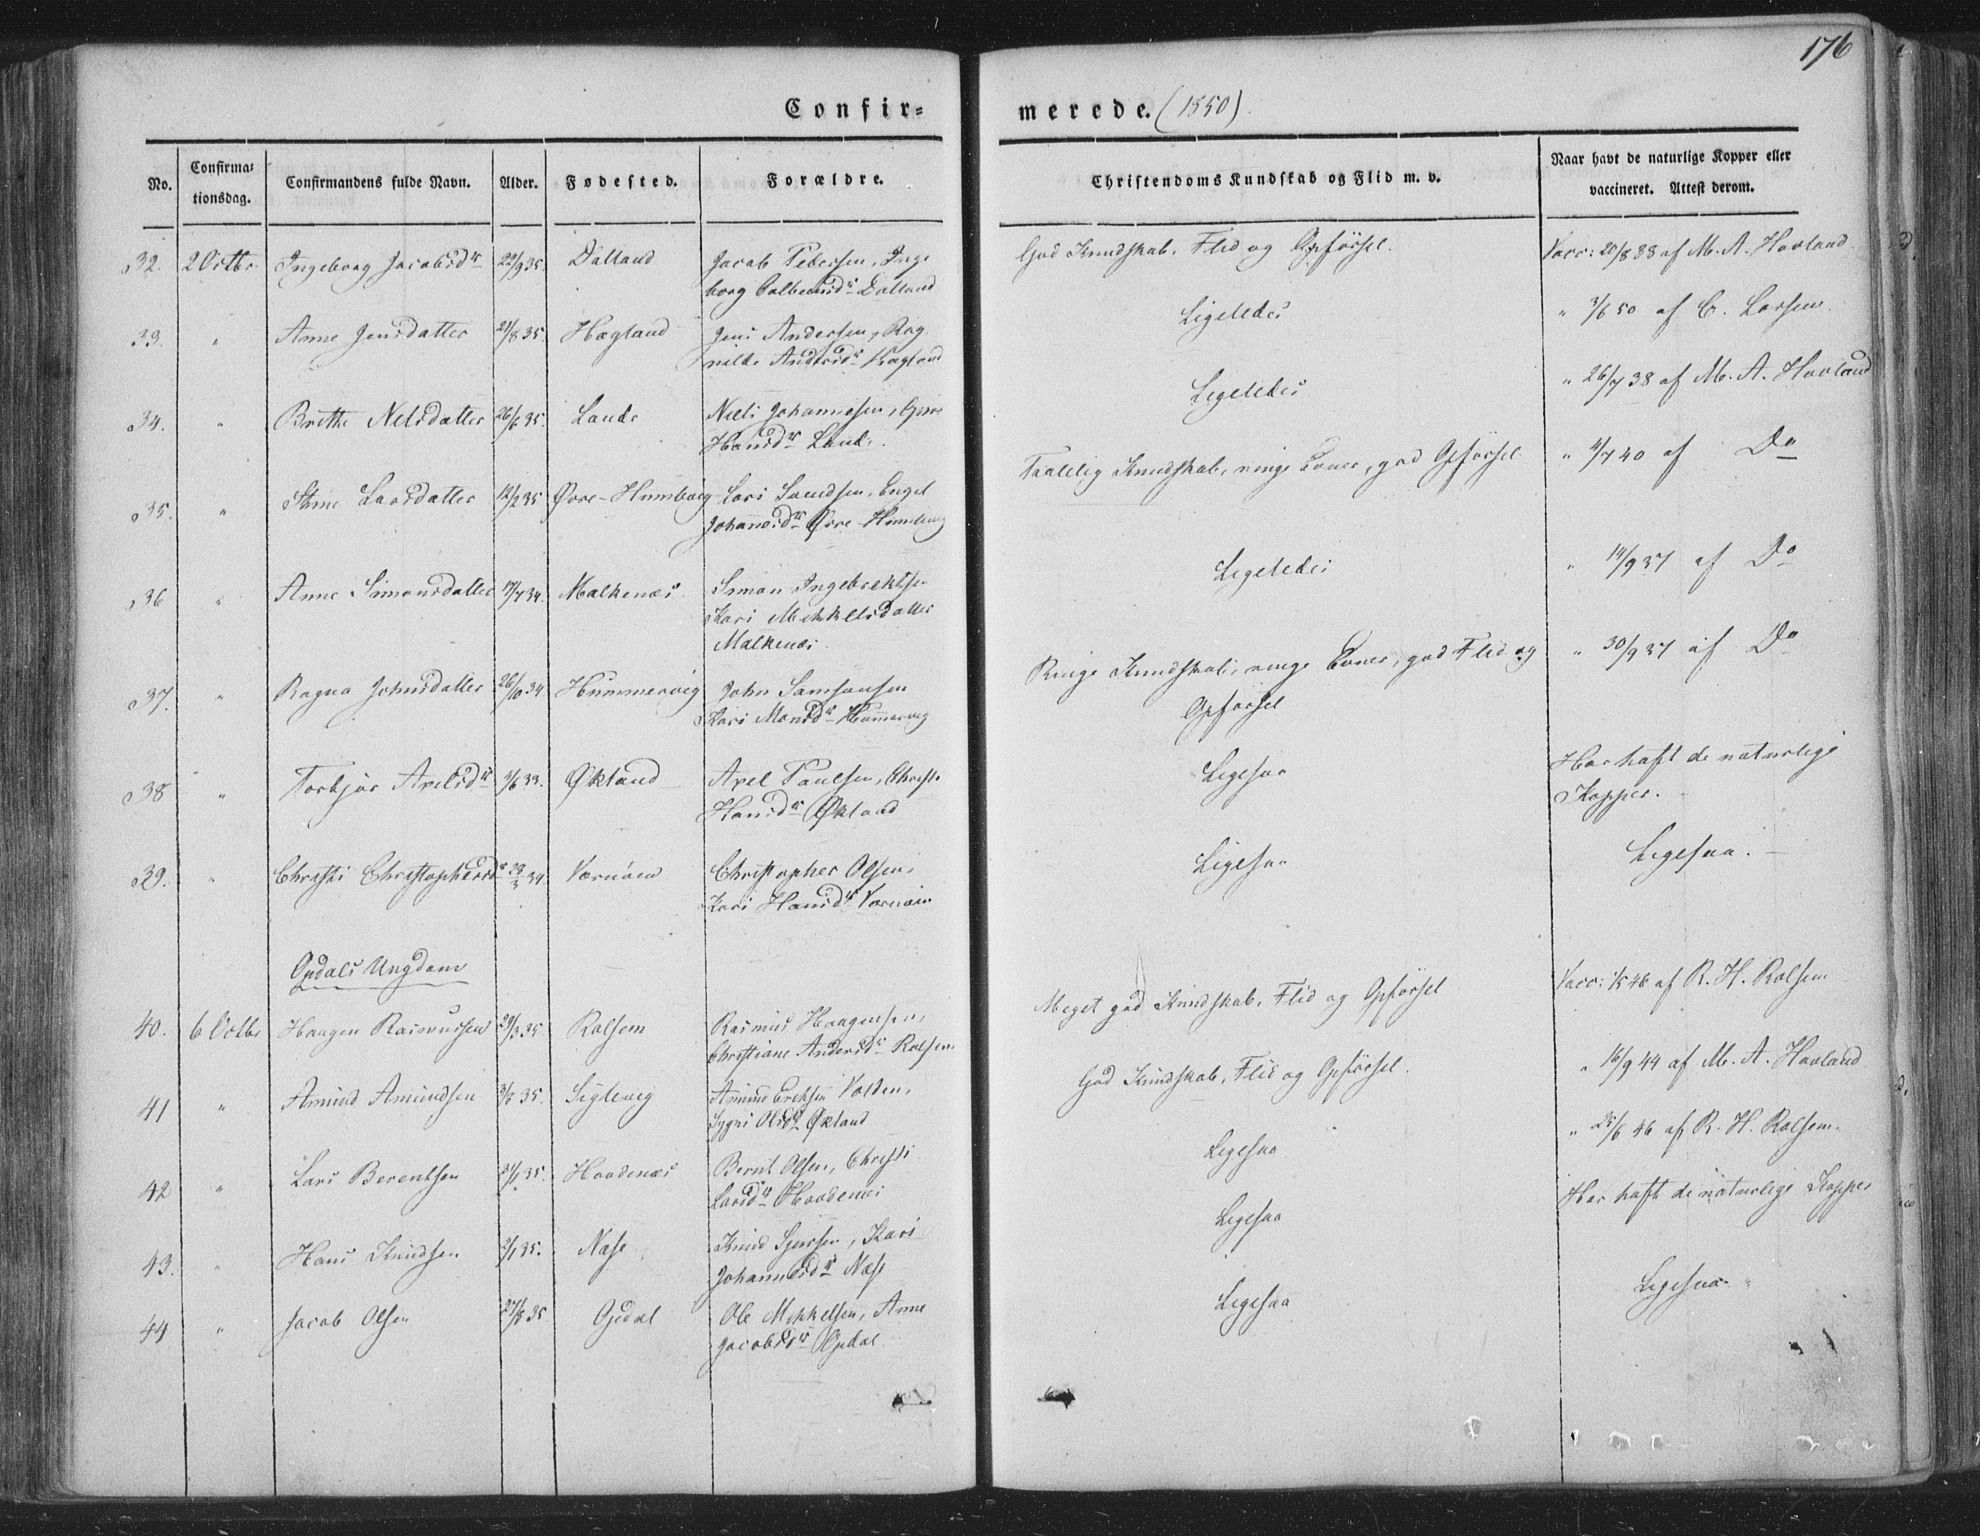 176
Confir=
merede. (1850).
No.
Confirma=
tionsdag.
Confirmandens fulde Navn.
Alder.
Fødested.
Forældre.
Christendoms Kundskab og Flid m. v.
Naar havt de naturlige Kopper eller
vaccineret. Attest derom.
32. 2 Octbr. Ingeborg Jacobsdr 22/9 35. Dalland Jacob Pedersen, Inge
borg Dalland
God Kundskab, Flid og Opførsel. Vacc: 20/8 38 af M. A. Hovland
33. " Anne Jensdatter 21/8 35. Hægland Jens Andersen, Rag
nilde Andersdr Hægland
Ligeledes " 3/6 50 af C. Larsen.
34. " Brithe Nelsdatter 26/6 35. Lande Niels Johannesen,
Hansdr Lande.
Ligeledes " 26/7 38 af M. A. Hovland
35. " Stine Larsdatter 12/2 35 Øvre-Hummervig Lars Svendsen, Engel
Johannesdr Øvre-Hummervig
Taalelig Kundskab, ringe Evner, god Opførsel " 11/7 40 af Do
36 " Anne Simonsdatter 17/7 34. Malkenæs Simon Ingebrektsen
Kari Mikkelsdatter
Malkenæs.
Ligeledes " 14/9 37 af Do
37. " Ragna Johnsdatter 34 Hummervig John Samsonsen
Kari Monsdr Hummervig
Ringe Kundskab, ringe Evner, god Flid og
Opførsel
" 30/9 37 af Do
38 " Torbjør Axelsdr 33. Økland Axel Paulsen, Christi
Hansdr Økland
Ligesaa Har haft de naturlige
Kopper.
39. " Christi Christophersdr 34. Vernøen Christopher Olsen,
Kari Hansdr Vernøen
Ligesaa Ligesaa.
Opdals Ungdom
40. 6 Octbr Haagen Rasmussen 29/3 35. Rolsem Rasmus Haagensen,
Christiane Andersdr Rolsem
Meget god Kundskab, Flid og Opførsel Vacc: 46 af R. H. Rolsem
41 " Amund Amundsen 35. Siglevig Amund Eriksen Valden,
Sygni Olsdr Økland
God Kundskab, Flid og Opførsel. " 16/9 44 af M. A. Hovland
42 " Lars Berentsen 35. Haadenæs Bernt Olsen, Christi
Larsdr Haadenæs
Ligesaa " 25/6 46 af R. H. Rolsem.
43. " Hans Knudsen 35. Næse Knud Sjursen, Kari
Johannesdr Næse
Ligesaa Har haft de naturlige Kopper
44 " Jacob Olsen 27/8 35 Opdal Ole Mikkelsen, Anne
Jacobsdr Opdal.
Ligesaa Ligesaa